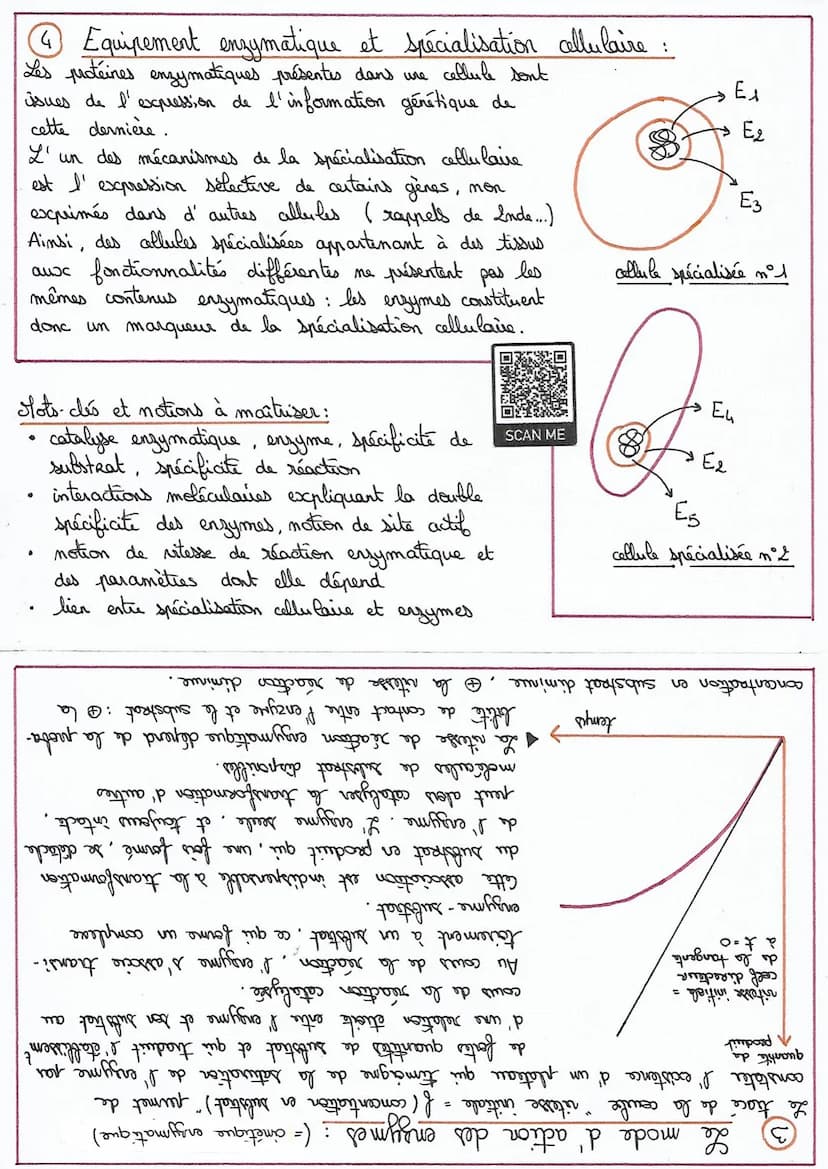 4 Equipement enzymatique et spécialisation cellulaire :
Les protéines enzymatiques présentes dans une cellule sont
issues de l'expression de l'information génétique de
cette dernière.
L'un des mécanismes de la spécialisation cellulaire
est l'expression sélective de certains gènes, non
exprimés dans d'autres cellules (rappels de 2nde...)
Ainsi, des cellules spécialisées appartenant à des tissus
aux fonctionnalités différentes ne présentent pas les
mêmes contenus enzymatiques : les enzymes constituent
donc un marqueur de la spécialisation cellulaire.
E1
E2
E3
cellule spécialisée n°1
E4
E2
E5
cellule spécialisée n°2
SCAN ME
Mots-clés et notions à maîtriser :
• catalyse enzymatique, enzyme, spécificité de
substrat, spécificité de réaction
• interactions moléculaires expliquant la double
spécificité des enzymes, notion de site actif
• notion de vitesse de réaction enzymatique et
des paramètres dont elle dépend
• lien entre spécialisation cellulaire et enzymes
3 Le mode d'action des enzymes : (= cinétique enzymatique)
Le tracé de la courbe "vitesse initiale = f (concentration en substrat)" permet de
constater l'existence d'un plateau qui témoigne de la saturation de l'enzyme par
de fortes quantités de substrat et qui traduit l'établissemt
d'une relation étroite entre l'enzyme et son substrat au
cours de la réaction catalysée.
Au cours de la réaction, l'enzyme s'associe transi-
toirement à un substrat, ce qui forme un complexe
enzyme-substrat.
Cette association est indispensable à la transformation
du substrat en produit qui, une fois formé, se détache
de l'enzyme. L'enzyme seule, et toujours intacte,
peut alors catalyser la transformation d'autres
molécules de substrat disponibles.
▶ La vitesse de réaction enzymatique dépend de la proba-
bilité de contact entre l'enzyme et le substrat : ⊕ la
concentration en substrat diminue, ⊕ la vitesse de réaction diminue.
quantité de
produit
vitesse initiale =
coeff directeur
de la tangente
à t = 0
temps